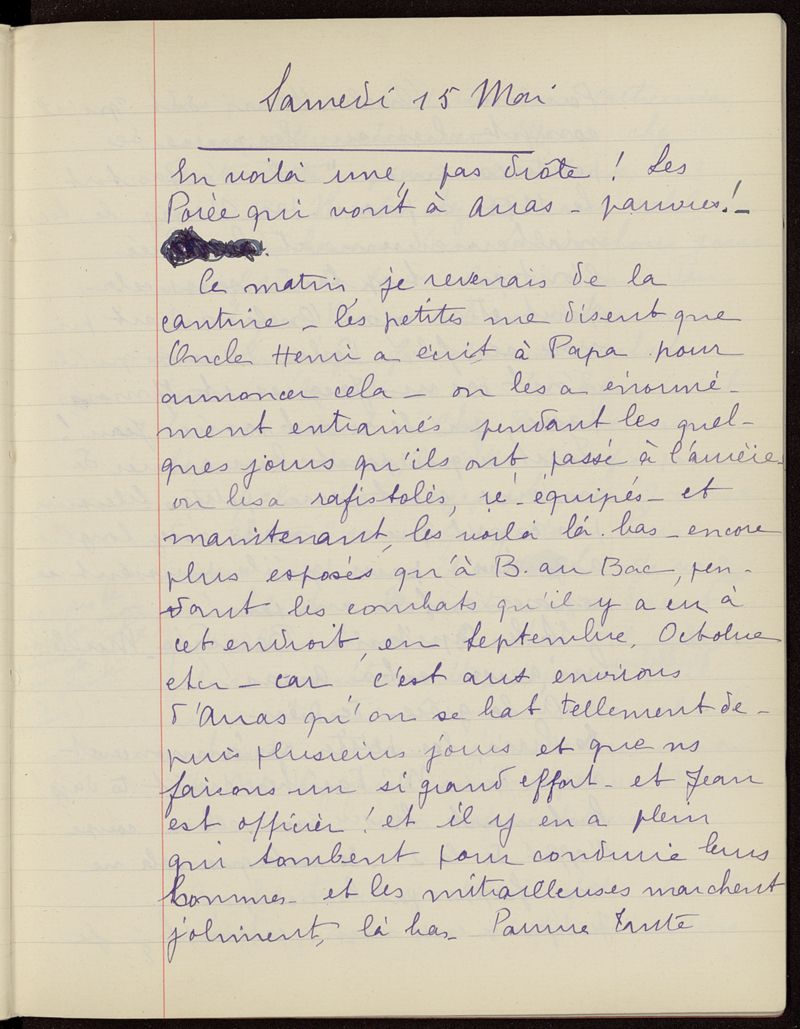 Samedi 15 Mai
En voilà une, pas drôle ! Les
Porée qui vont à Arras - pauvres ! -
Ce matin, je revenais de la
cantine - les petites me disent que
Oncle Henri a écrit à Papa pour
annoncer cela - on les a énormé-
ment entrainés pendant les quel-
ques jours qu'ils ont passé à l'arrière -
on les a rafistolés, ré-équipés - et
maintenant, les voilà là-bas - encore
plus exposés qu'à B. au Bac, pen-
dant les combats qu'il y a eu à
cet endroit, en Septembre, Octobre
etc - car c'est aux environs
d'Arras qu'on se bat tellement de-
puis plusieurs jours et que ns
faisons un si grand effort - et Jean
est officier ! et il y en a plein
qui tombent pour conduire leurs
hommes - et les mitrailleuses marchent
joliment, là bas - Pauvre Tante